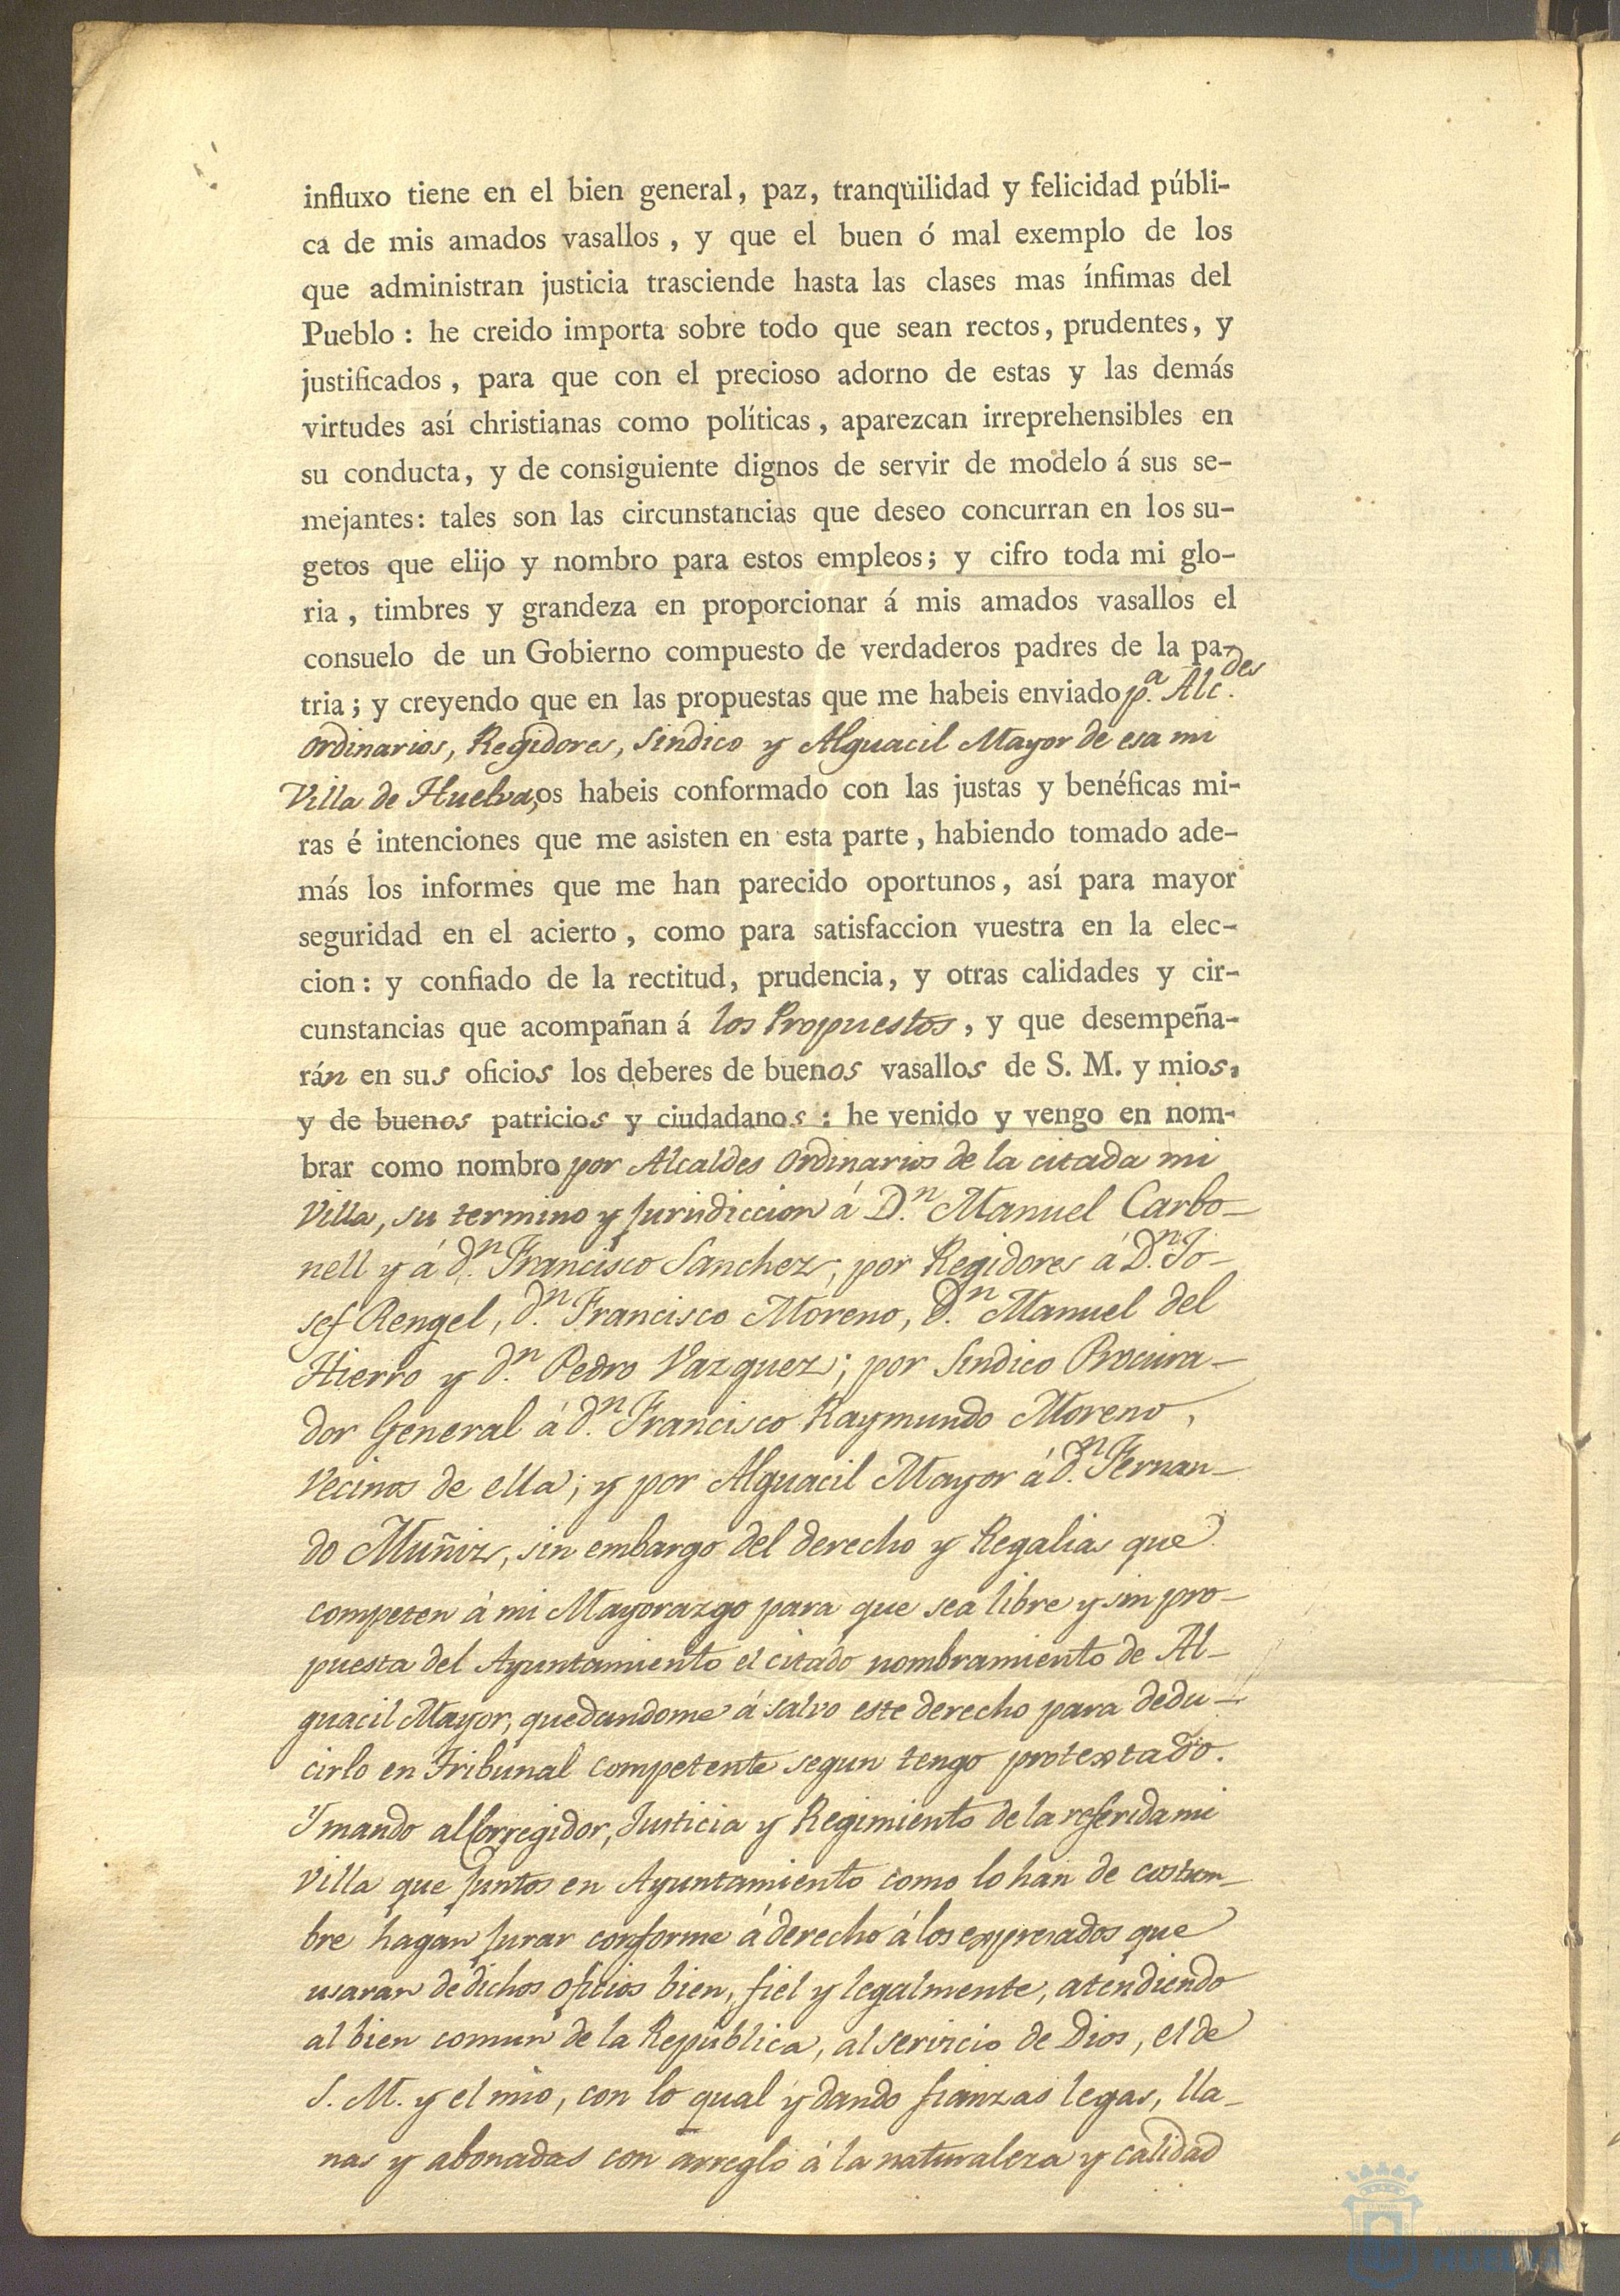 influxo tiene en el bien general, paz, tranquilidad y felicidad públi-
ca de mis amados vasallos, y que el buen ó mal exemplo de los
que administran justicia trasciende hasta las clases mas ínfimas del
Pueblo: he creido importa sobre todo que sean rectos, prudentes, y
justificados, para que con el precioso adorno de estas y las demás
virtudes así christianas como políticas, aparezcan irreprehensibles en
su conducta, y de consiguiente dignos de servir de modelo á sus se-
mejantes: tales son las circunstancias que deseo concurran en los su-
getos que elijo y nombro para estos empleos; y cifro toda mi glo-
ria, timbres y grandeza en proporcionar á mis amados vasallos el
consuelo de un Gobierno compuesto de verdaderos padres de la pa-
tria; y creyendo que en las propuestas que me habeis enviado p.ª Alc.des
Ordinarios, Regidores, Sindico y Alguacil Mayor de esa mi
Villa de Huelva, os habeis conformado con las justas y benéficas mi-
ras é intenciones que me asisten en esta parte, habiendo tomado ade-
más los informes que me han parecido oportunos, así para mayor
seguridad en el acierto, como para satisfaccion vuestra en la elec-
cion: y confiado de la rectitud, prudencia, y otras calidades y cir-
cunstancias que acompañan á los Propuestos, y que desempeña-
rán en sus oficios los deberes de buenos vasallos de S. M. y mios,
y de buenos patricios y ciudadanos: he venido y vengo en nom-
brar como nombro por Alcaldes Ordinarios de la citada mi
Villa, su termino y Jurisdiccion á D.n Manuel Carbo-
nell y á d.n Francisco Sanchez; por Regidores á D.n Jo-
sef Rengel, d.n Francisco Moreno, D.n Manuel del
Hierro y d.n Pedro Vazquez; por Sindico Procura-
dor General á d.n Francisco Raymundo Moreno,
Vecinos de ella; y por Alguacil Mayor á d.n Fernan-
do Muñiz, sin embargo del derecho y Regalias que
competen á mi Mayorazgo para que sea libre y sin pro-
puesta del Ayuntamiento el citado nombramiento de Al-
guacil Mayor, quedandome á salvo este derecho para dedu-
cirlo en Tribunal competente segun tengo protextado.
Y mando al Corregidor, Justicia y Regimiento de la referida mi
Villa que Juntos en Ayuntamiento como lo han de costum-
bre hagan Jurar conforme á derecho á los expresados que
usaran de dichos oficios bien, fiel y legalmente, atendiendo
al bien comun de la Republica, al servicio de Dios, el de
S. M. y el mio, con lo qual y dando fianzas legas, lla-
nas y abonadas con arreglo á la naturaleza y calidad
Ayuntamiento
HUELVA